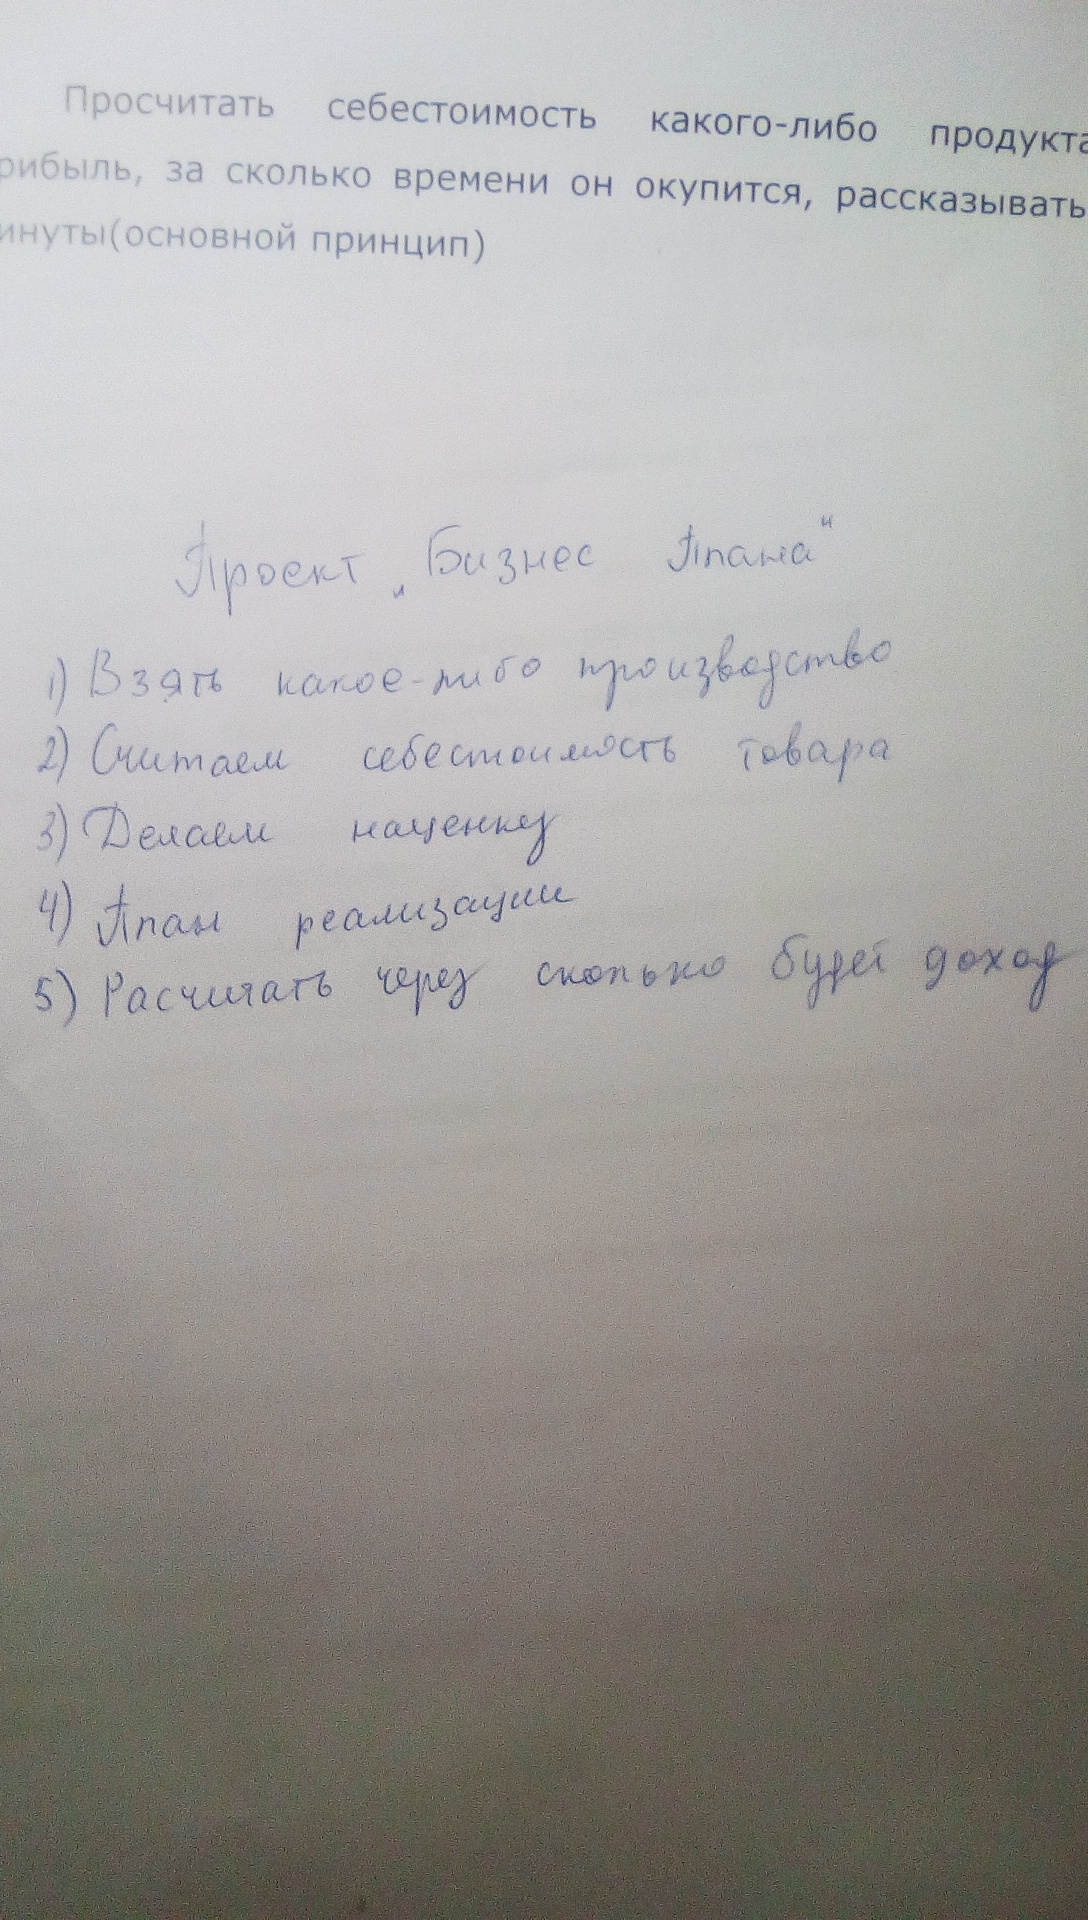 Просчитать себестоимость какого-либо продукта
рибыль, за сколько времени он окупится, рассказывать
инуты(основной принцип)
Проект „Бизнес Плана“
1) Взять какое-либо производство
2) Считаем себестоимость товара
3) Делаем наценку
4) План реализации
5) Расчитать через сколько будет доход